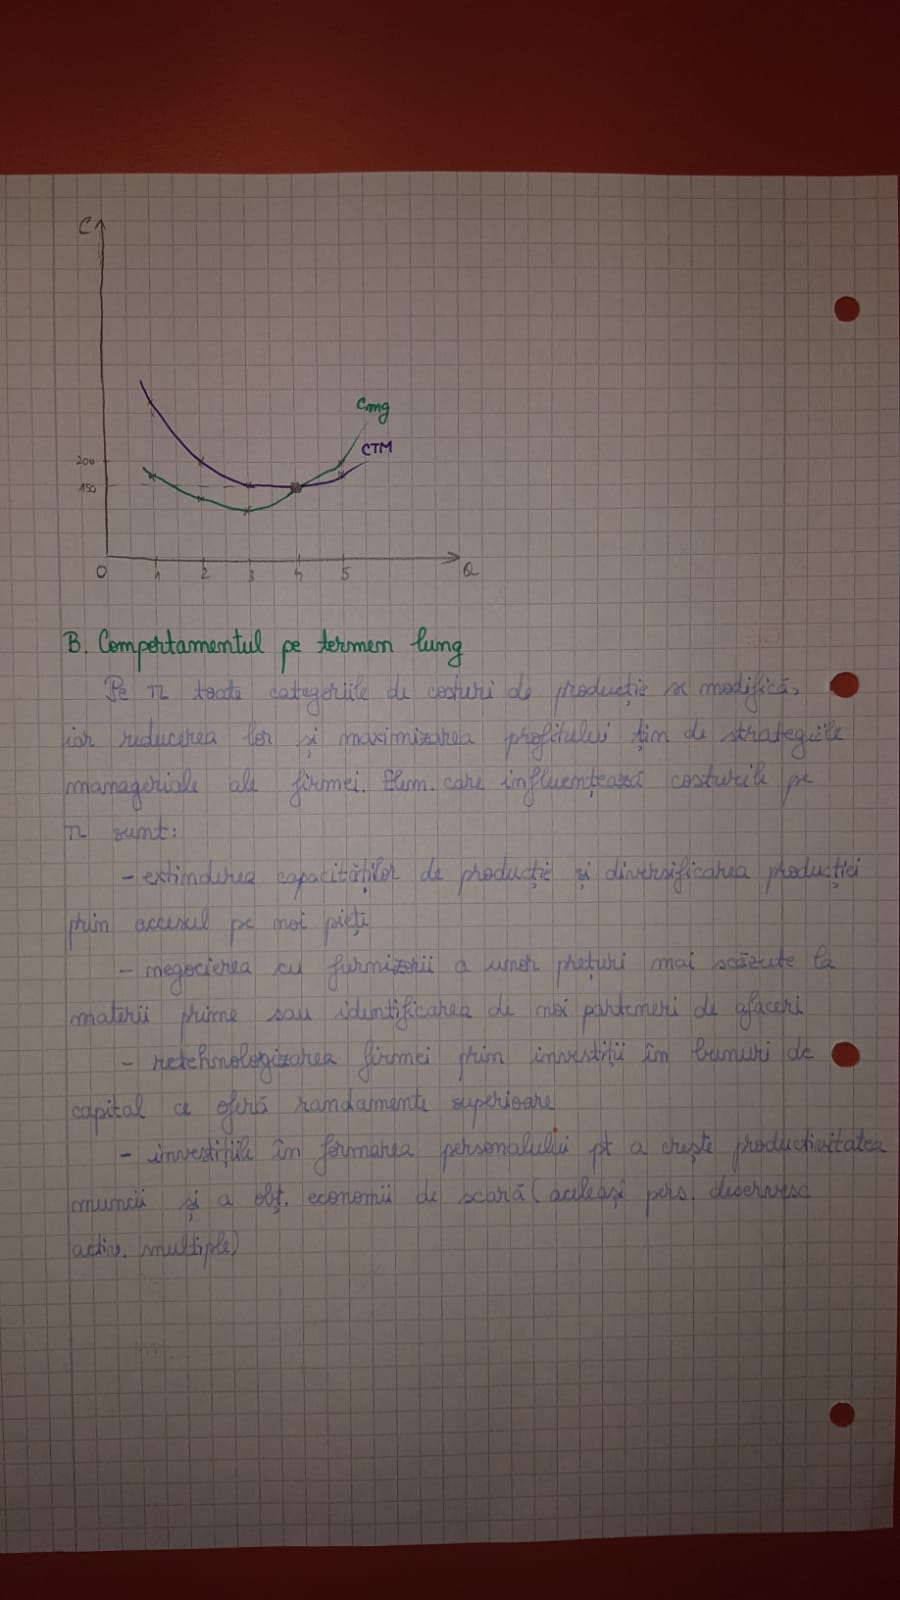 C
200
150
0
1
2
3
4
5
Q
Cmg
CTM
B. Comportamentul pe termen lung
Pe TL toate categoriile de costuri de producție se modifică,
iar reducerea lor și maximizarea profitului țin de strategiile
manageriale ale firmei. Elem. care influențează costurile pe
TL sunt:
- extinderea capacităților de producție și diversificarea producției
prin accesul pe noi piețe
- negocierea cu furnizorii a unor prețuri mai scăzute la
materii prime sau identificarea de noi parteneri de afaceri
- retehnologizarea firmei prin investiții în bunuri de
capital ce oferă randamente superioare
- investițiile în formarea personalului pt a crește productivitatea
muncii și a obț. economii de scară (aceleași pers. deservesc
activ. multiple)